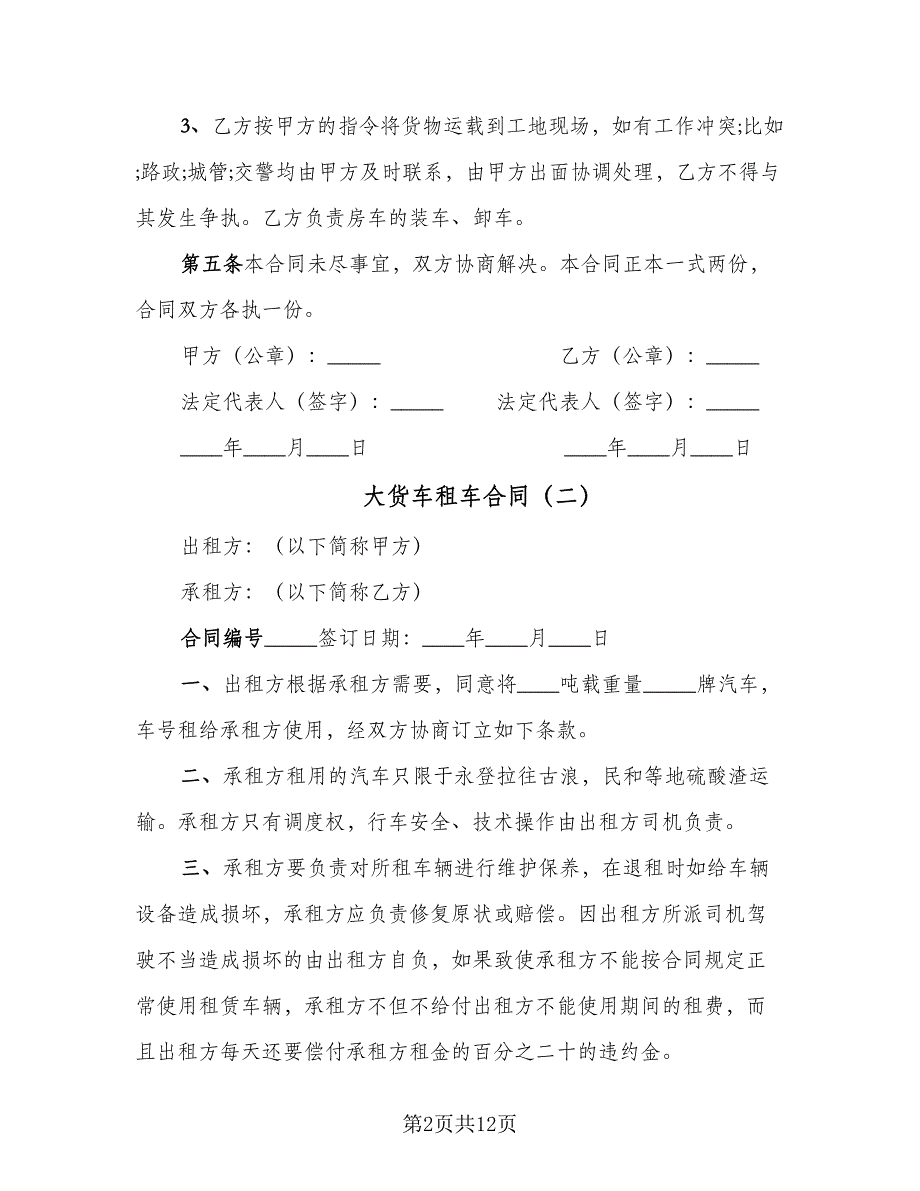 3、乙方按甲方的指令将货物运载到工地现场，如有工作冲突;比如
;路政;城管;交警均由甲方及时联系，由甲方出面协调处理，乙方不得与
其发生争执。乙方负责房车的装车、卸车。
第五条本合同未尽事宜，双方协商解决。本合同正本一式两份，
合同双方各执一份。
甲方（公章）：_____ 乙方（公章）：_____
法定代表人（签字）：_____ 法定代表人（签字）：_____
____年____月____日 ____年____月____日
大货车租车合同（二）
出租方：（以下简称甲方）
承租方：（以下简称乙方）
合同编号_____签订日期：____年____月____日
一、出租方根据承租方需要，同意将____吨载重量_____牌汽车，
车号租给承租方使用，经双方协商订立如下条款。
二、承租方租用的汽车只限于永登拉往古浪，民和等地硫酸渣运
输。承租方只有调度权，行车安全、技术操作由出租方司机负责。
三、承租方要负责对所租车辆进行维护保养，在退租时如给车辆
设备造成损坏，承租方应负责修复原状或赔偿。因出租方所派司机驾
驶不当造成损坏的由出租方自负，如果致使承租方不能按合同规定正
常使用租赁车辆，承租方不但不给付出租方不能使用期间的租费，而
且出租方每天还要偿付承租方租金的百分之二十的违约金。
第2页共12页